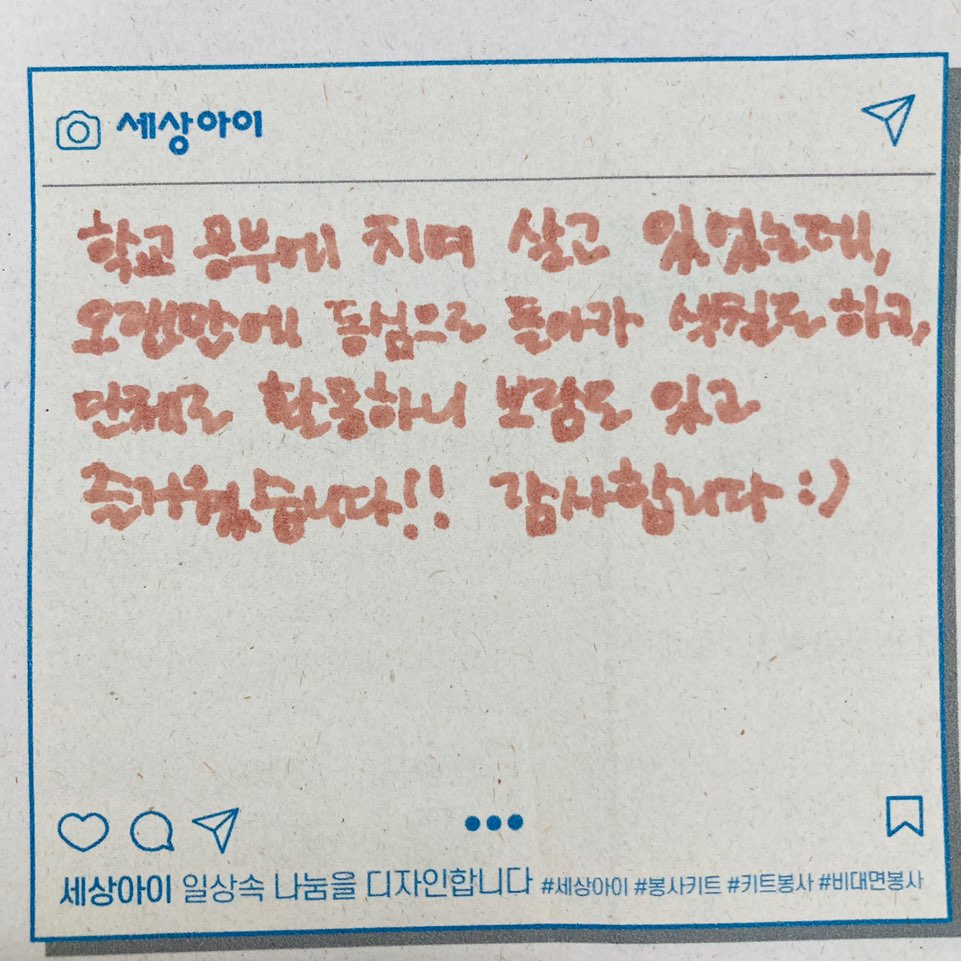 세상아이
학교 공부에 치여 살고 있었는데,
오랜만에 동심으로 돌아가 색칠도 하고,
단체로 활동하니 보람도 있고
즐거웠습니다!! 감사합니다 :)
세상아이 일상속 나눔을 디자인합니다 #세상아이 #봉사키트 #키트봉사 #비대면봉사